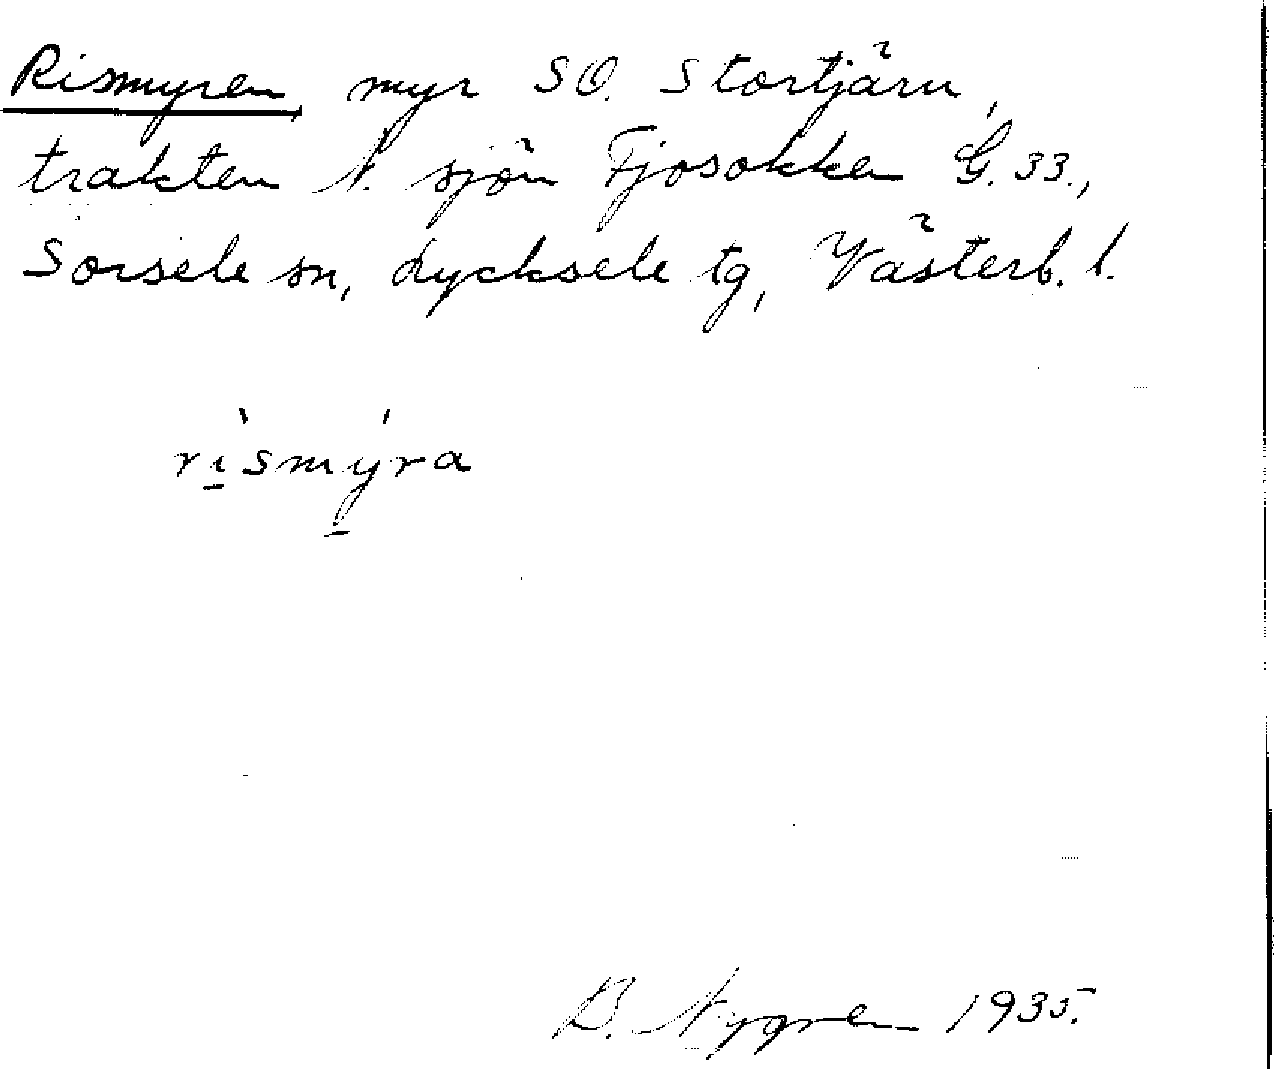 Rismyren, myr SO. Stortjärn,
trakten N. sjön Fjosokken G. 33.,
Sorsele sn, Lycksele tg, Västerb. l.
rìsmýra
B. Nygren 1935.